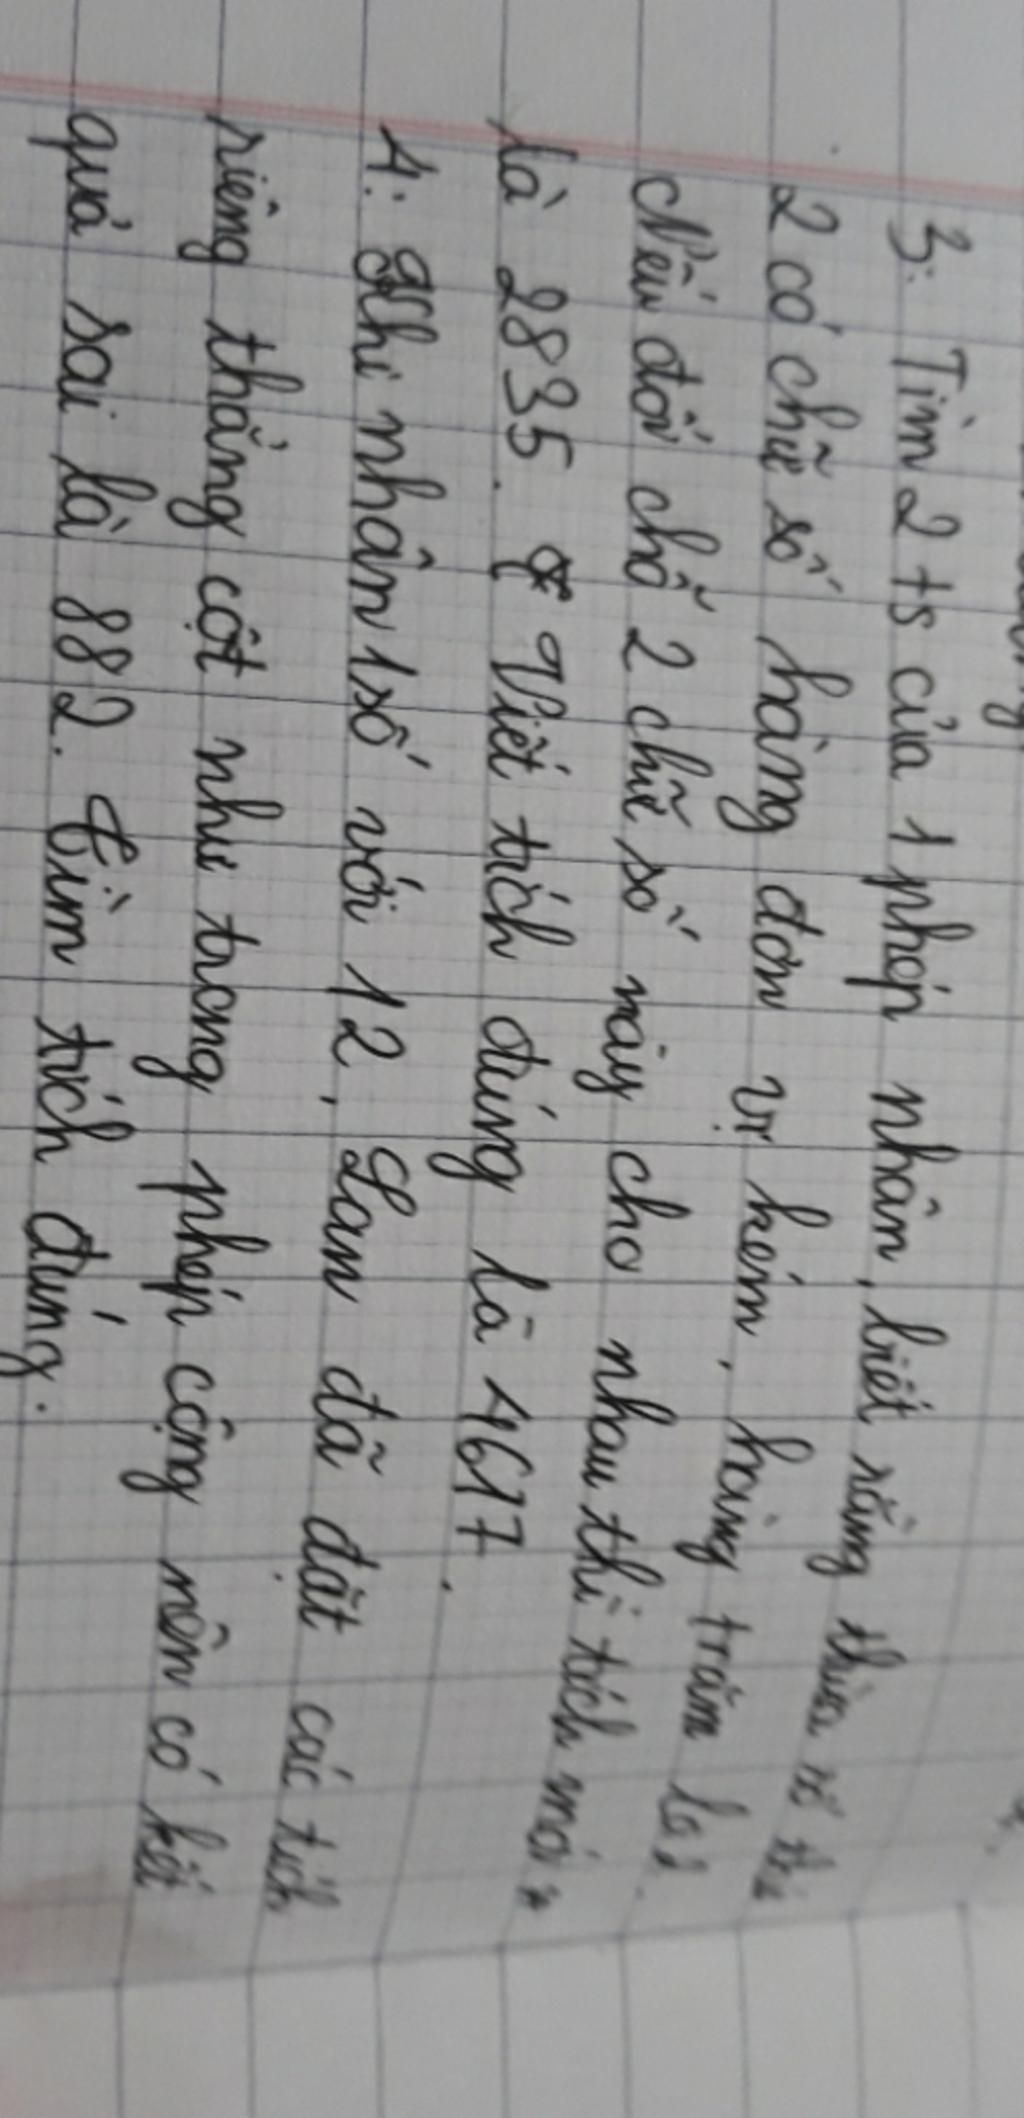 3. Tìm 2 ts của 1 phép nhân, biết rằng thừa số thứ
2 có chữ số hàng đơn vị kém, hàng trăm là 1.
Nếu đổi chỗ 2 chữ số này cho nhau thì tích mới
là 2835. Viết tích đúng là 4617.
4. Khi nhân 1 số với 12, Lan đã đặt các tích
riêng thẳng cột như trong phép cộng nên có kết
quả sai là 882. Tìm tích đúng.